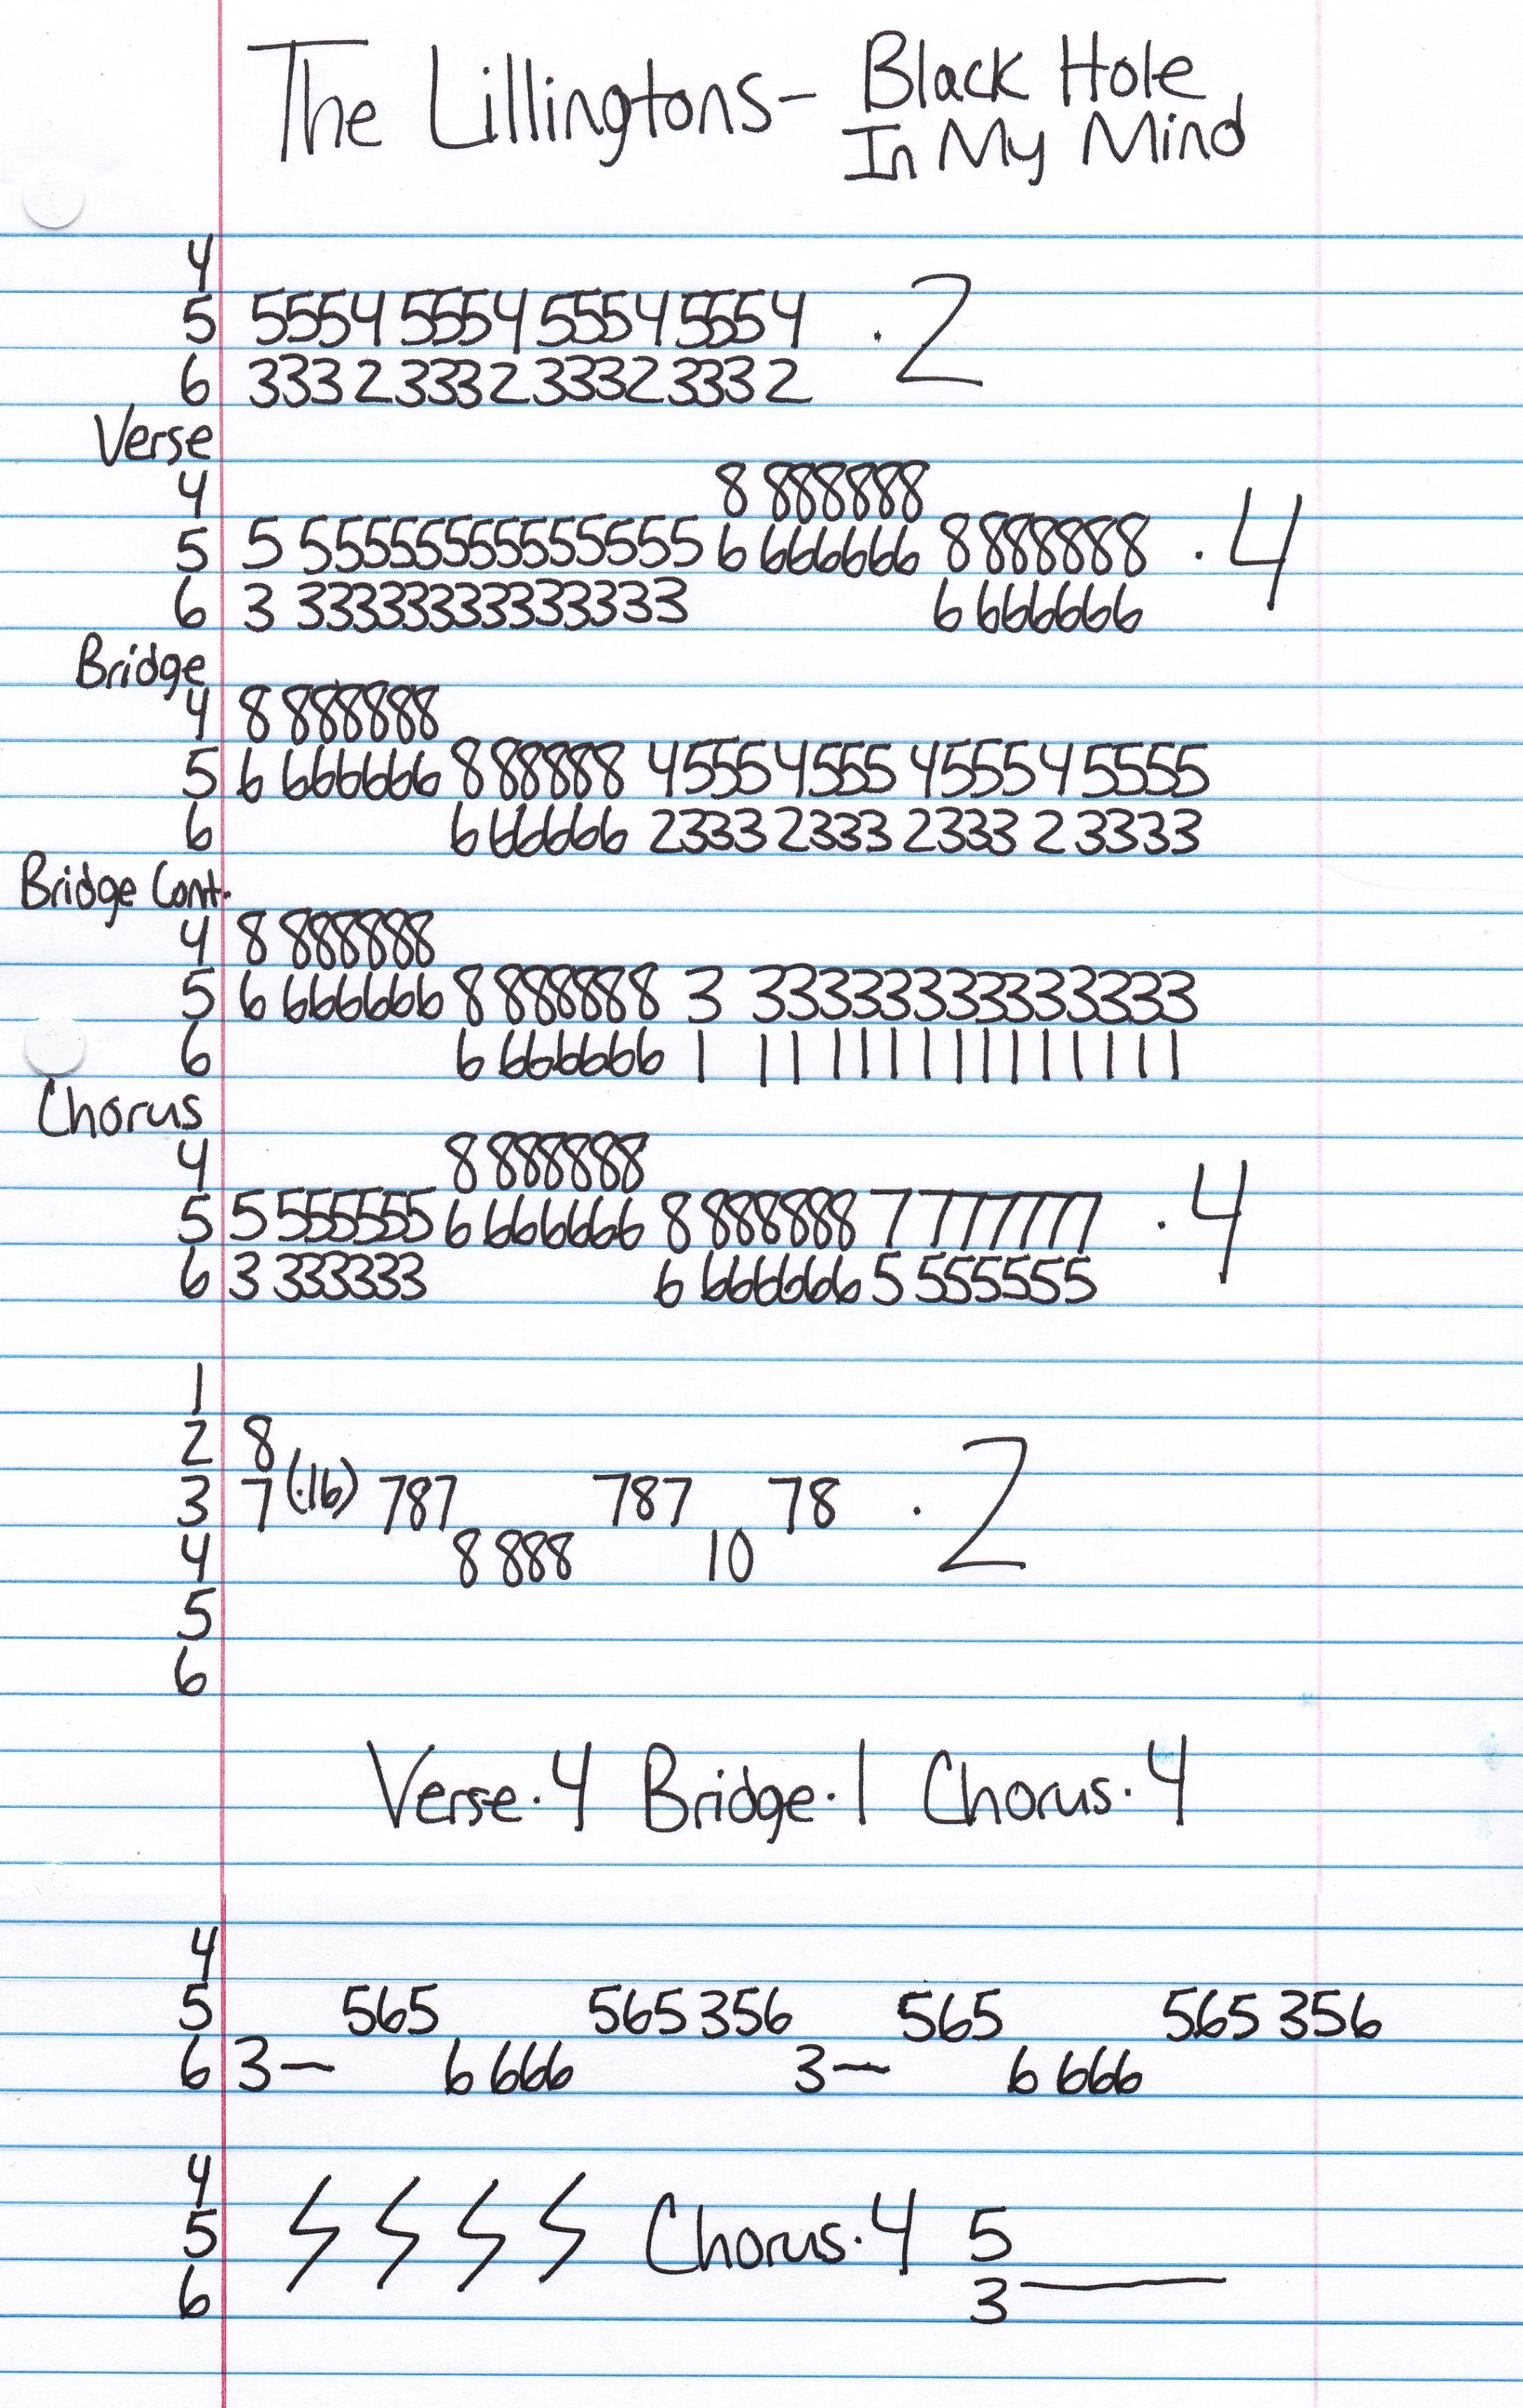 The Lillingtons - Black Hole
In My Mind
4
5 5554 5554 5554 5554 . 2
6 3332 3332 3332 3332
Verse
4 8 888888
5 5 5555555555555 6 666666 8 888888 . 4
6 3 3333333333333 6 666666
Bridge
4 8 888888
5 6 666666 8 88888 4555 4555 4555 4 5555
6 6 66666 2333 2333 2333 2 3333
Bridge Cont.
4 8 888888
5 6 666666 8 888888 3 33333333333333
6 6 666666 1 11111111111111
Chorus
4 8 888888
5 5 555555 6 666666 8 888888 7 777777 . 4
6 3 333333 6 666666 5 555555
1
2 8
3 7 (.16) 787 787 78 . 2
4 8 888 10
5
6
Verse . 4 Bridge . 1 Chorus . 4
4
5 565 565 356 565 565 356
6 3— 6 666 3— 6 666
4
5 Chorus . 4 5
6 3—